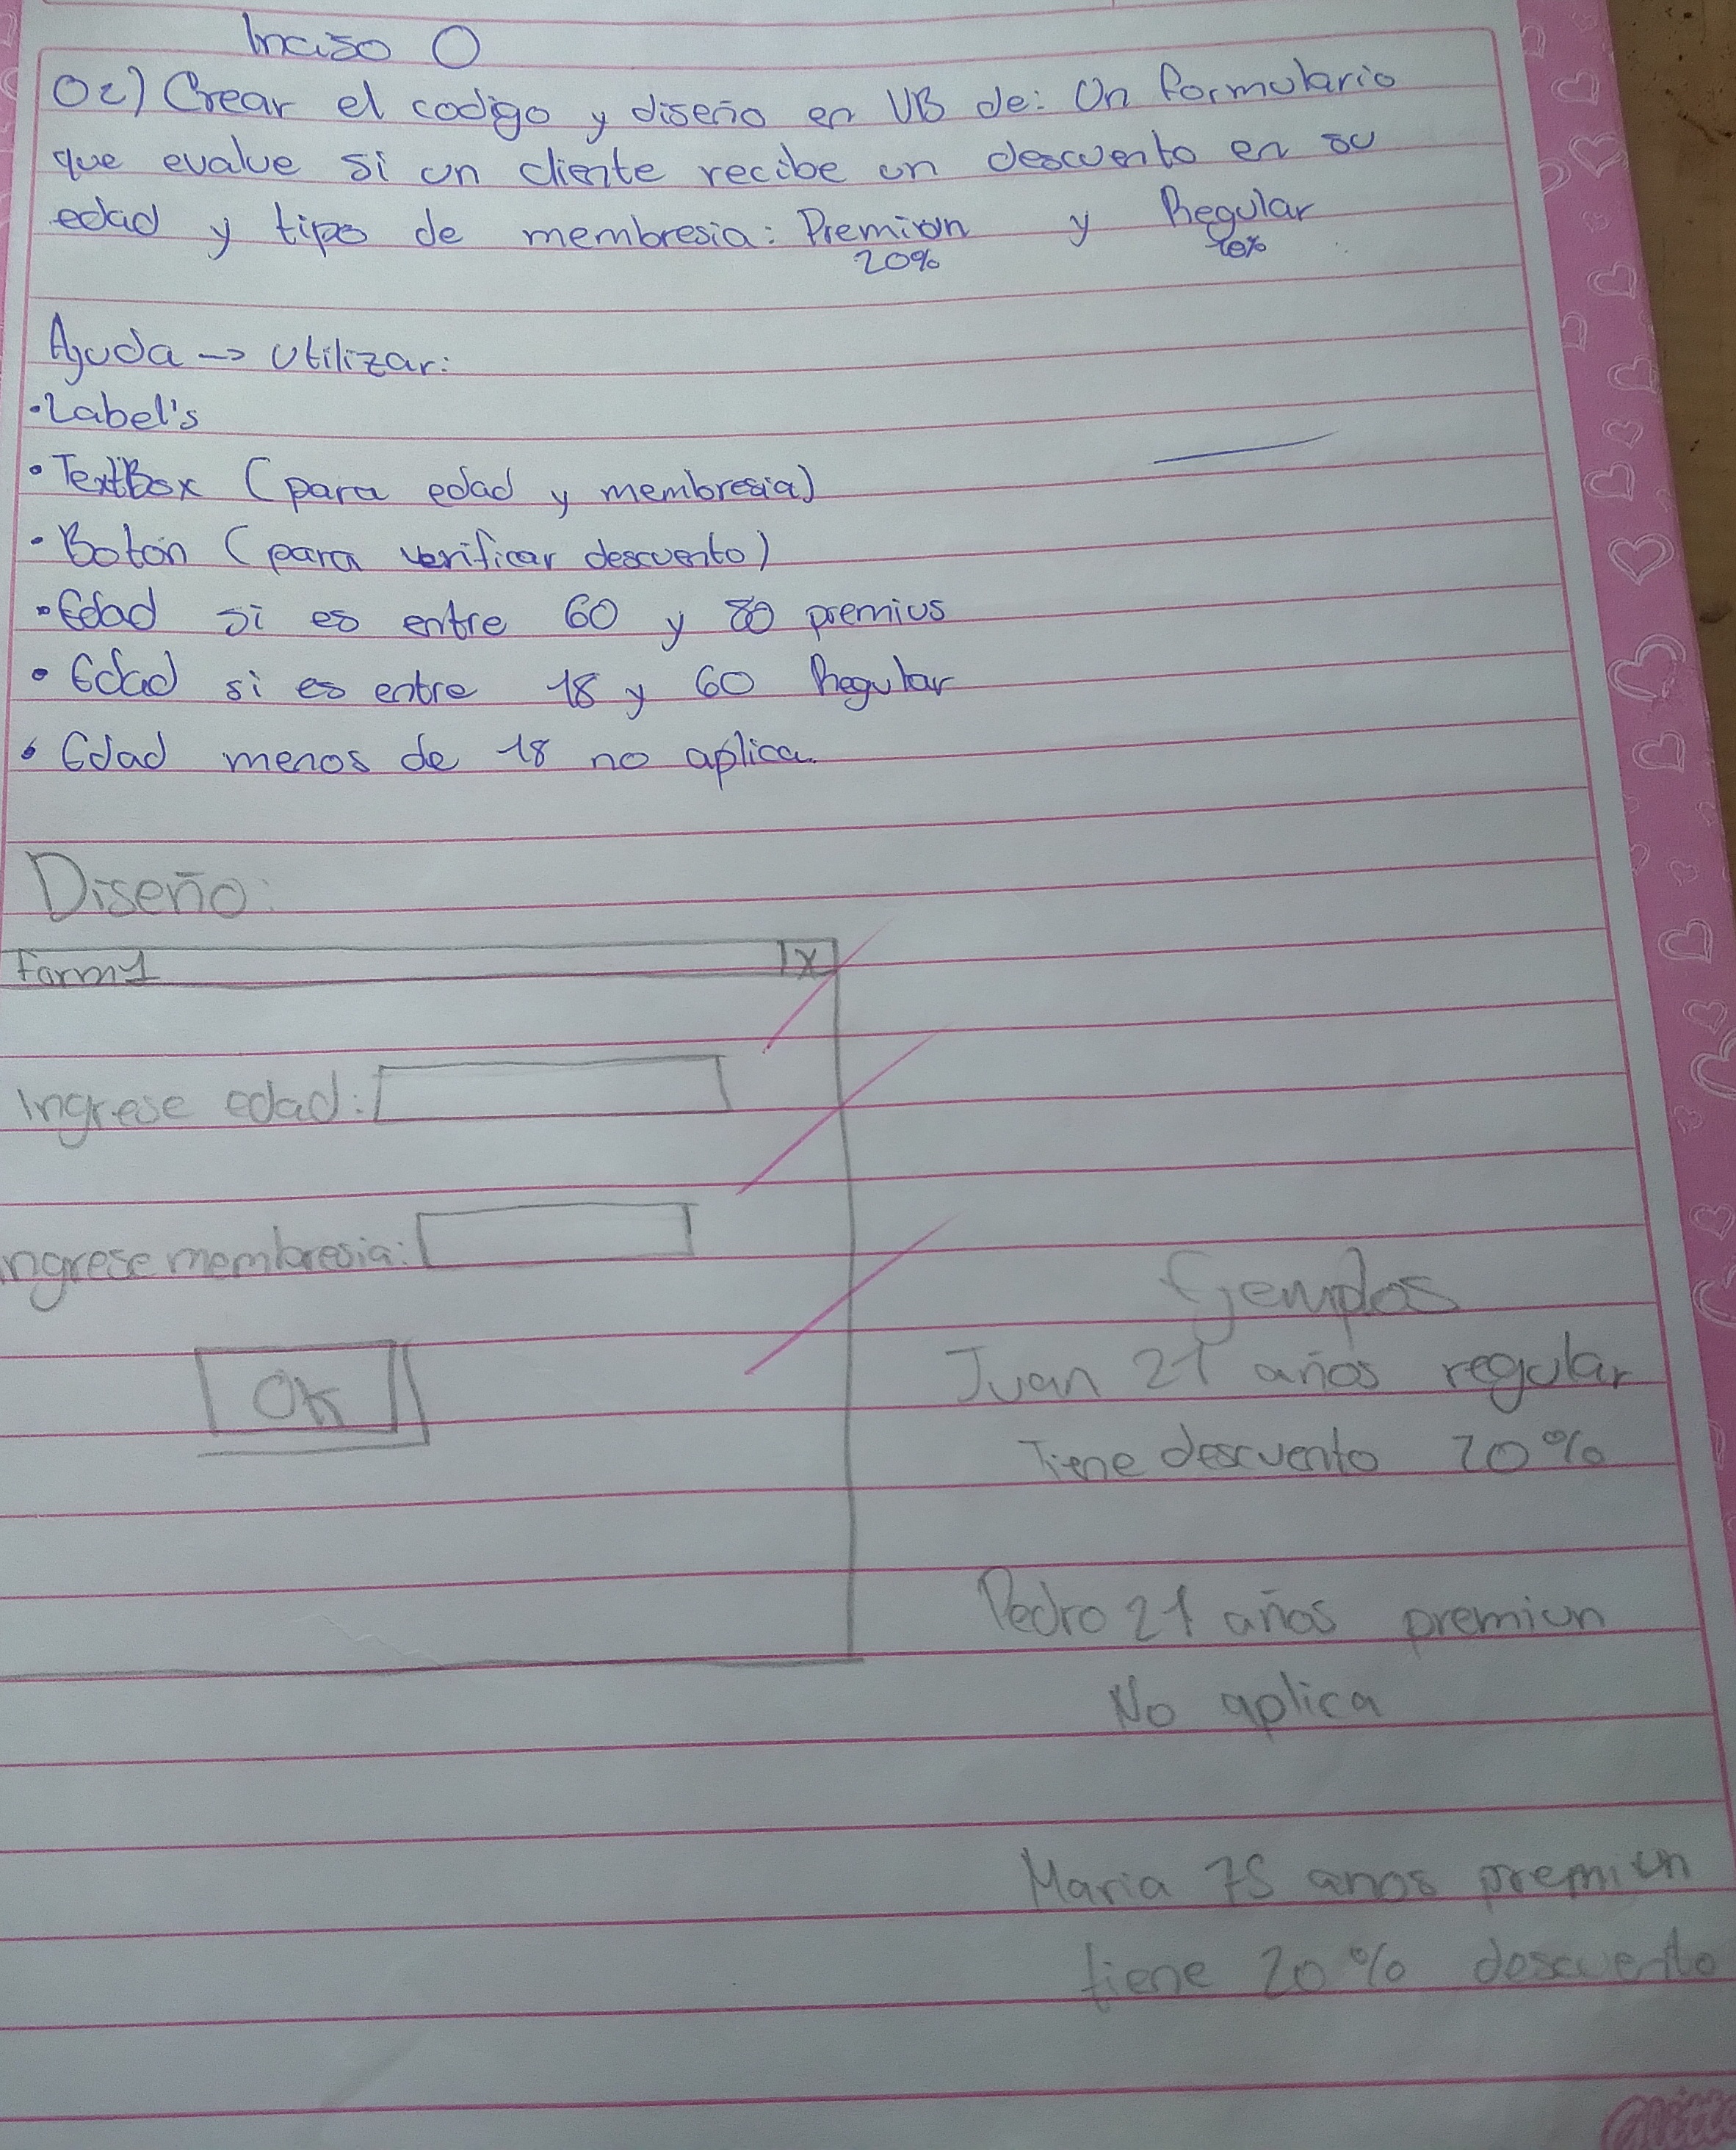 Inciso O
Oc) Crear el codigo y diseño en VB de: Un formulario
que evalue si un cliente recibe un descuento en su
edad y tipo de membresia: Premiun y Regular
20% 10%
Ayuda -> Utilizar:
• Label's
• TextBox (para edad y membresia)
• Botón (para verificar descuento)
• Edad si es entre 60 y 80 premius
• Edad si es entre 18 y 60 Regular
• Edad menos de 18 no aplica.
Diseño:
Form1 X
Ingrese edad:
ngrese membresia:
OK
Ejemplos
Juan 21 años regular
Tiene descuento 20%
Pedro 21 años premiun
No aplica
Maria 75 anos premiun
tiene 20% descuento